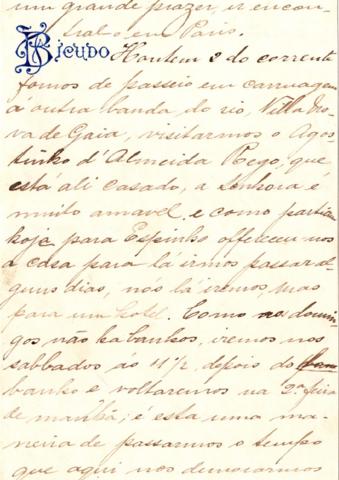 um grande prazer, ir encon-
tral-o em Paris.
BICUDO
Hontem 2 do corrente
fomos de passeio em carruagem
á outra banda do rio, Villa No-
va de Gaia, visitarmos o Agos-
tinho d'Almeida Rego, que
está ali casado, a senhora é
muito amavel, e como partiam
hoje para Espinho offereceu-nos
a casa para lá irmos passar al-
guns dias, nós lá iremos, mas
para um hotel. Como aos domin-
gos não ha banhos, iremos nos
sabbados ás 11 1/2 depois do
banho e voltaremos na 2ª feira
de manhã; é esta uma ma-
neira de passarmos o tempo
que aqui nos demorarmos